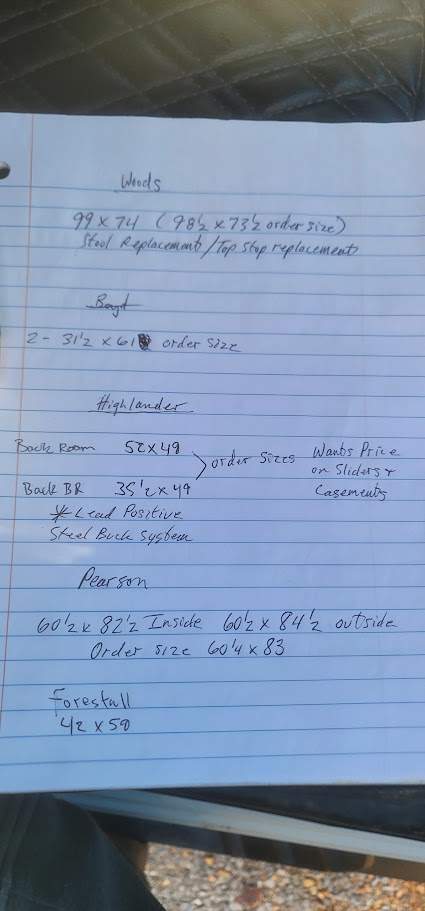 Woods
99 x 74 (98 1/2 x 73 1/2 order size)
Stool Replacement / Top Stop replacement
Boyd
2 - 31 1/2 x 61 order size
Highlander
Back Room 52 x 49
order sizes Wants Price on Sliders + Casements
Back BR 35 1/2 x 49
* Lead Positive
Steel Buck System
Pearson
60 1/2 x 82 1/2 Inside 60 1/2 x 84 1/2 outside
Order size 60 1/4 x 83
Forestall
42 x 58